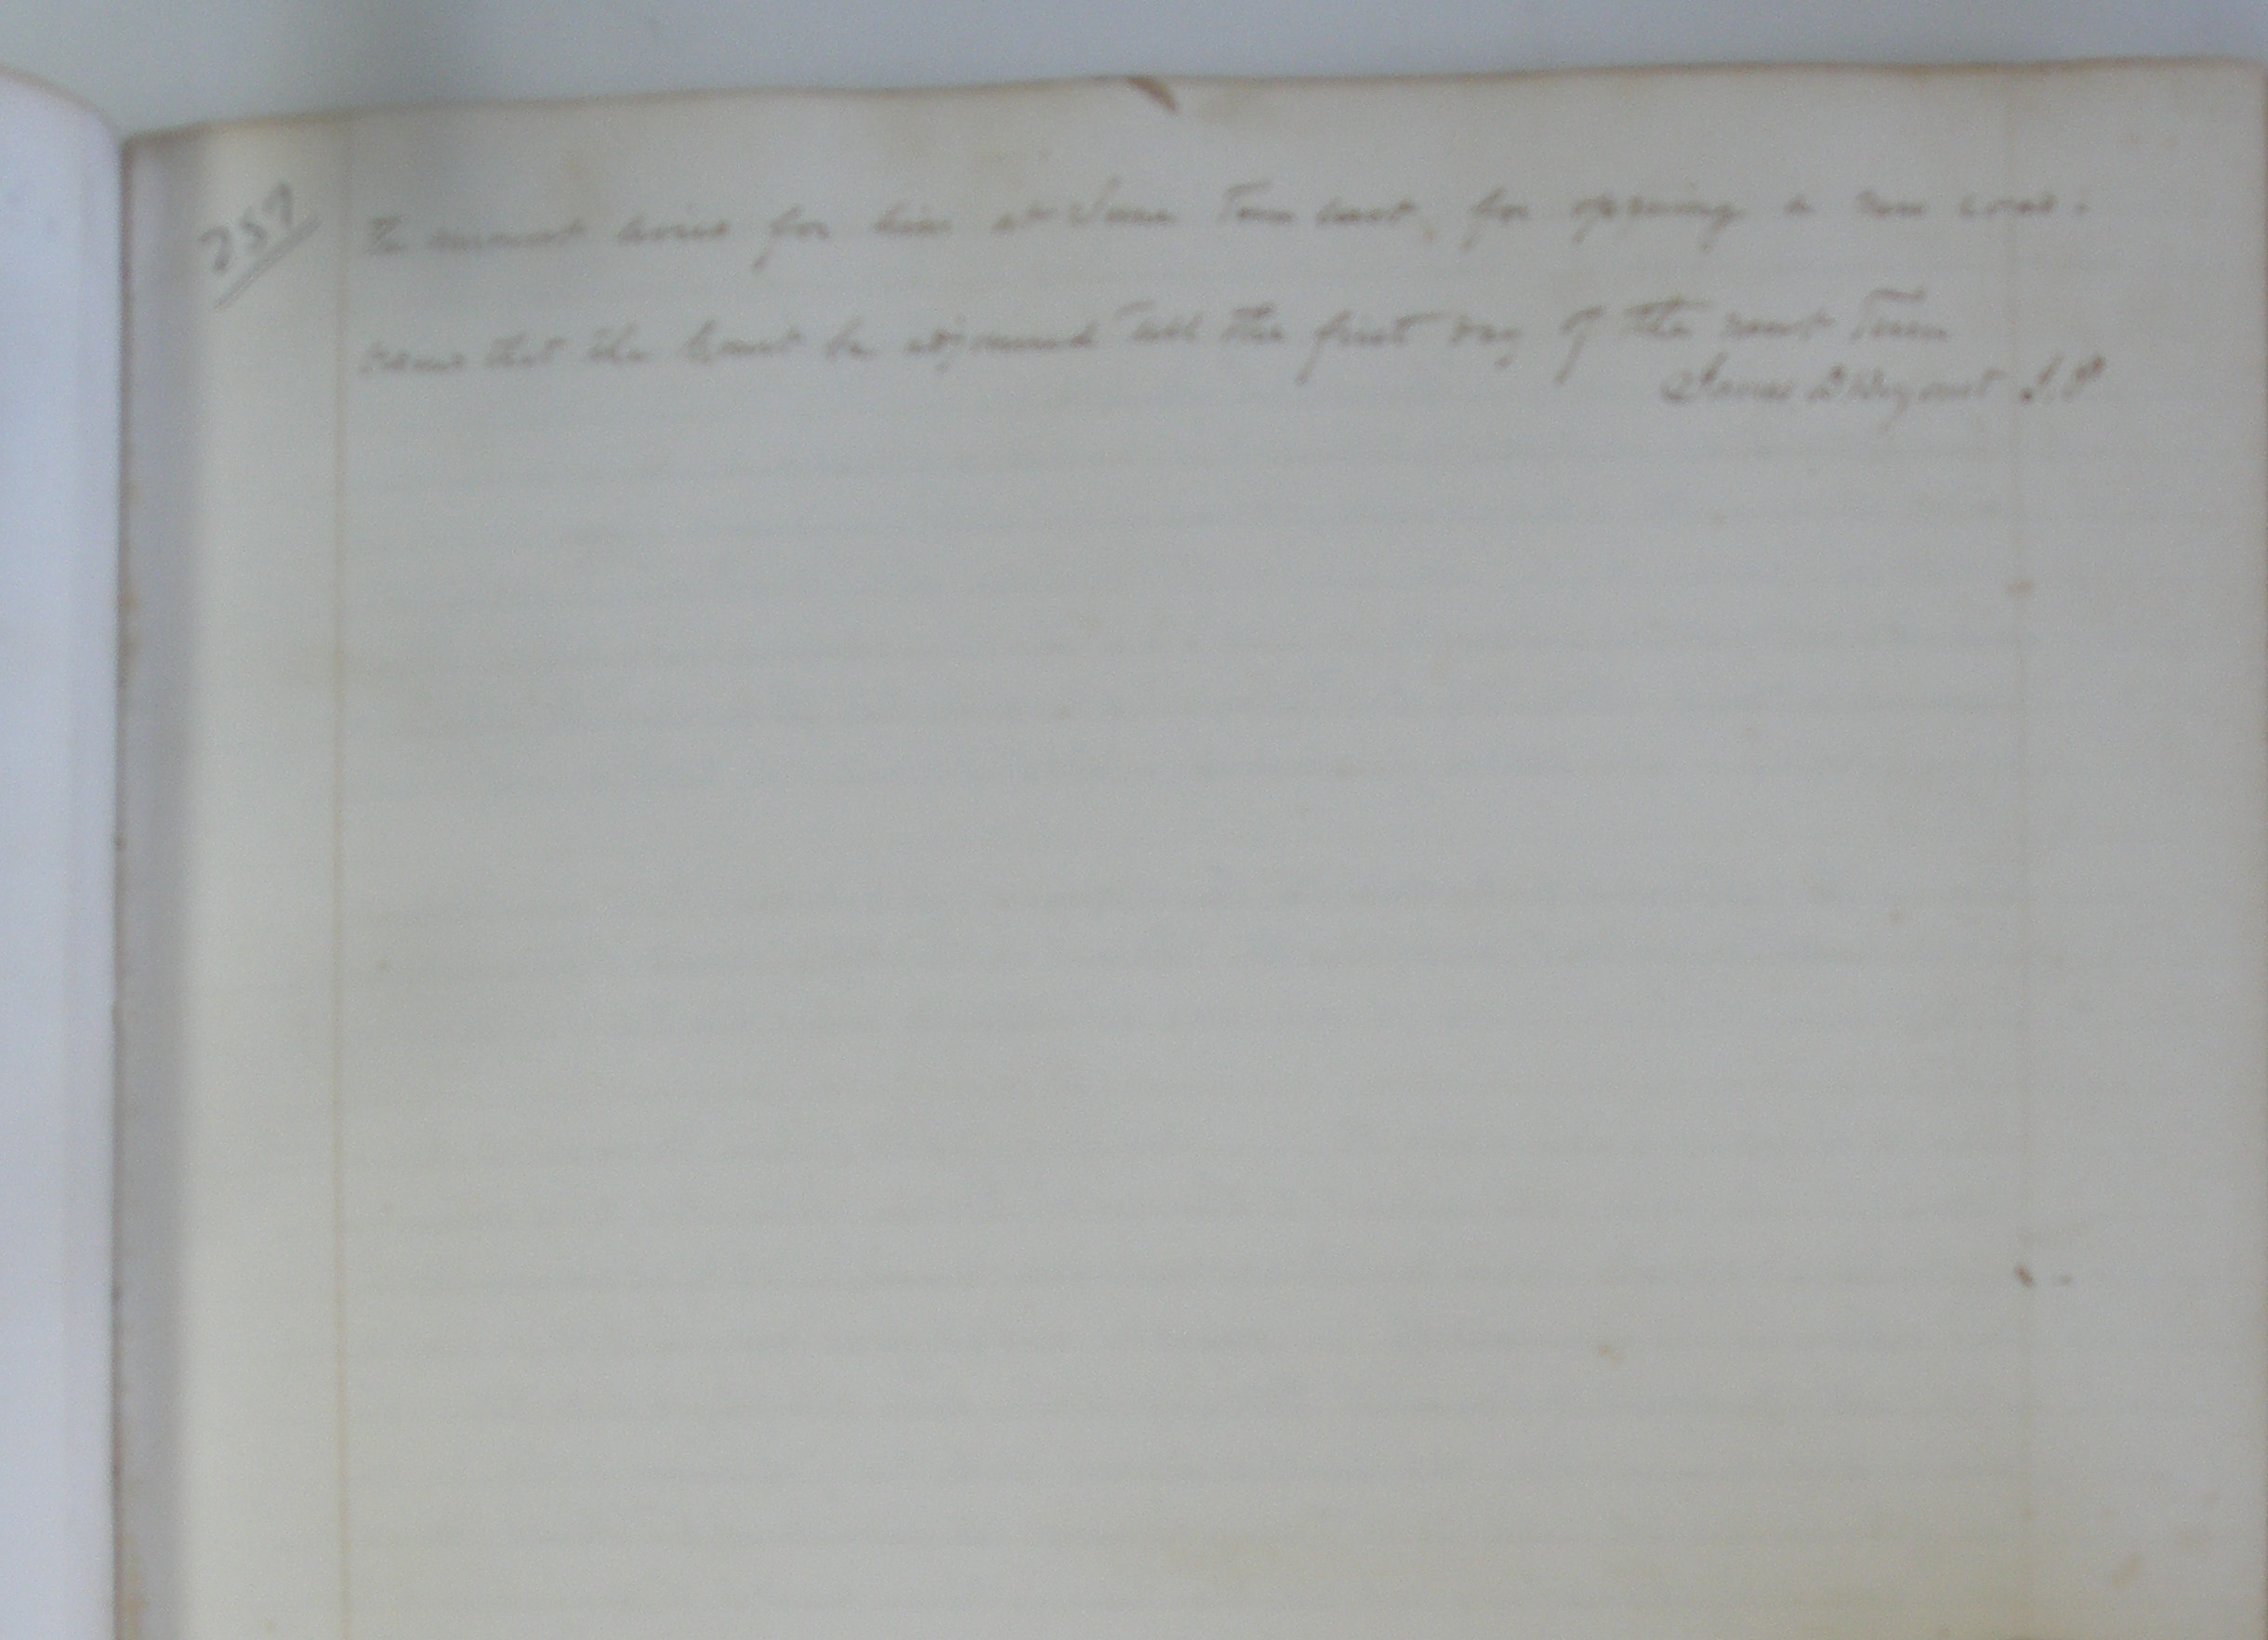 259
amount for him at June Term last, for opening a new road.
that the Court be adjourned till the first day of the next Term
James D Wyant J.P